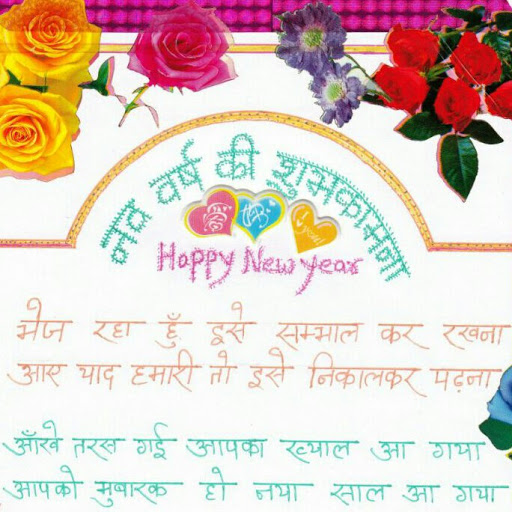 नव वर्ष की शुभकामना
Happy New year
भेज रहा हूँ इसे सम्भाल कर रखना
आए याद हमारी तो इसे निकालकर पढ़ना
आँखे तरस गई आपका ख्याल आ गया
आपको मुबारक हो नया साल आ गया